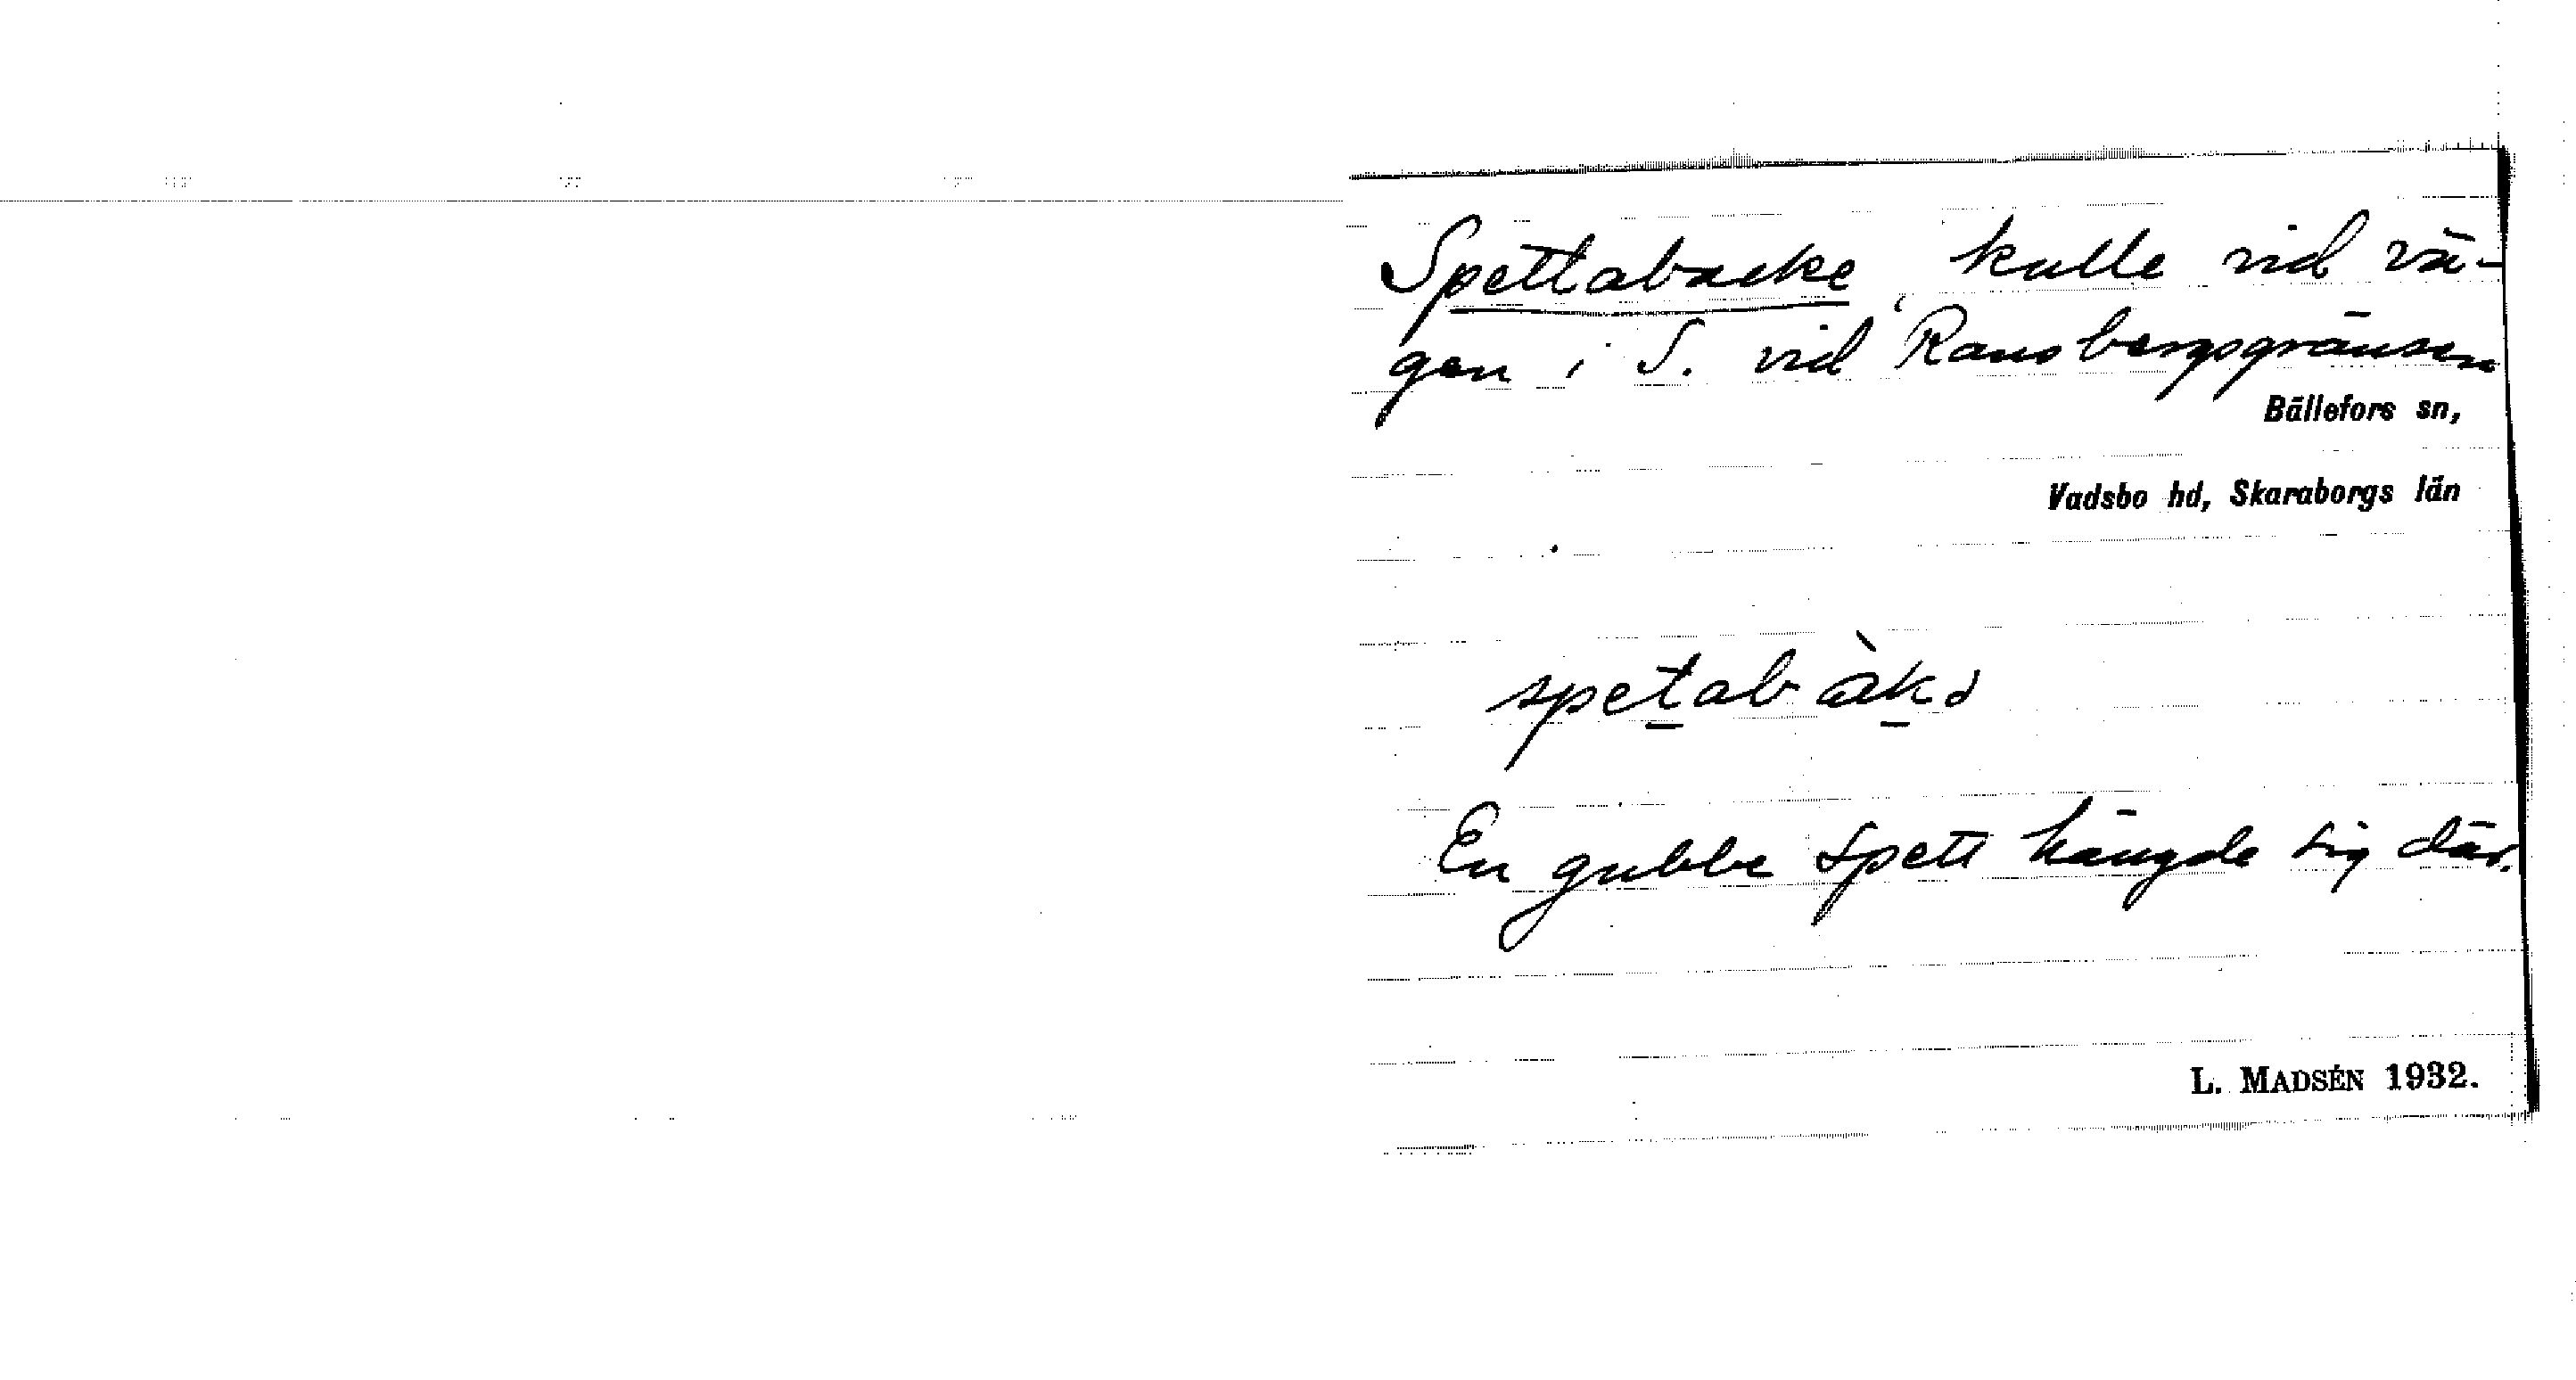 Spettabacke, kulle vid vä-
gen i S. vid Ransbergsgränsen
Bällefors sn,
Vadsbo hd, Skaraborgs län
En gubbe Spett hängde sig där.
L. MADSÉN 1932.